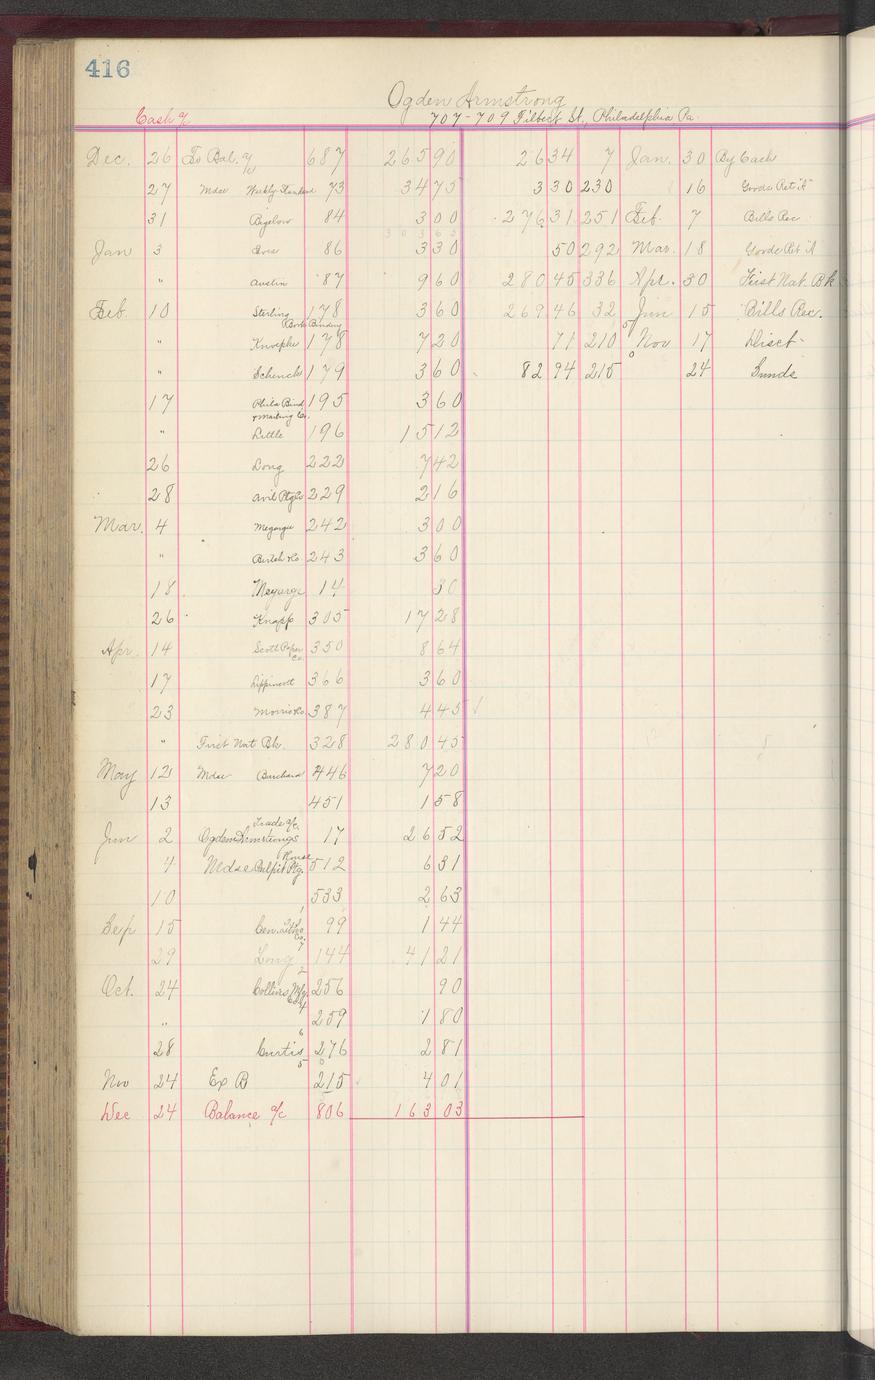 416
Ogden Armstrong
Cash a/c 707-709 Filbert St., Philadelphia Pa.
Dec. 26 To Bal. a/c 687 265 90 26 34 7 Jan. 30 By Cash
27 Mdse Weekly Standard 73 34 75 3 30 230 16 Goods Ret'd
31 Bigelow 84 3 00 276 31 251 Feb. 7 Bills Rec
303 65
Jan 3 86 3 30 50 292 Mar. 18 Goods Ret'd
" Austin 87 9 60 280 45 336 Apr. 30 First Nat. Bk
Feb. 10 Sterling 178 3 60 269 46 32 Jun 15 Bills Rec.
Book Binding
" Knoepke 178 7 20 71 210 Nov 17 Disct
" Schenck 179 3 60 82 94 215 24 Sunds
17 Phila Bind 195 3 60
& Mailing Co.
" Little 196 15 12
26 Long 222 7 42
28 Avil Ptg Co 229 2 16
Mar. 4 Megargee 242 3 00
" & Co. 243 3 60
18 Megarge 14 30
26 Knapp 305 17 28
Apr. 14 Scott Paper Co. 350 8 64
17 Lippincott 366 3 60
23 Morris Co. 387 4 45
" First Nat Bk. 328 280 45
May 12 Mdse Burchard 446 7 20
13 451 1 58
Trade a/c.
Jun 2 Ogden Armstrongs 17 26 52
House
4 Mdse Pulpit Ptg. 512 6 31
10 533 2 63
Sep 15 Cen. Litho Co. 99 1 44
29 Long 144 41 21
Oct. 24 Collins Mfg Co. 256 90
" 259 1 80
28 Curtis 276 2 81
Nov 24 Ex B 215 4 01
Dec 24 Balance a/c 806 163 03